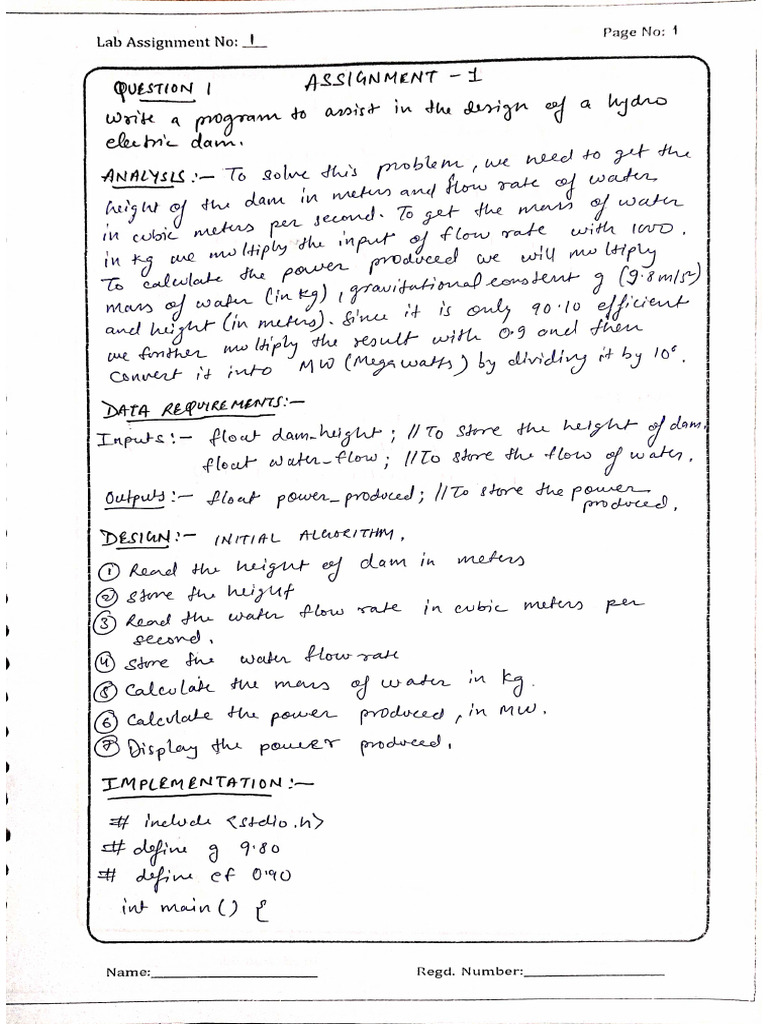 Lab Assignment No: 1
Page No: 1
ASSIGNMENT - 1
QUESTION 1
Write a program to assist in the design of a hydro
electric dam.
ANALYSIS :- To solve this problem, we need to get the
height of the dam in meters and flow rate of water
in cubic meters per second. To get the mass of water
in kg we multiply the input of flow rate with 1000.
To calculate the power produced we will multiply
mass of water (in kg), gravitational constent g (9.8 m/s²)
and height (in meters). Since it is only 90.10 efficient
we further multiply the result with 0.9 and then
convert it into MW (Megawatts) by dividing it by 10⁶.
DATA REQUIREMENTS:-
Inputs :- float dam_height ; // To store the height of dam.
float water_flow ; // To store the flow of water.
Outputs :- float power_produced ; // To store the power
produced.
DESIGN :- INITIAL ALGORITHM.
① Read the height of dam in meters
② Store the height
③ Read the water flow rate in cubic meters per
second.
④ Store the water flow rate
⑤ Calculate the mass of water in kg.
⑥ Calculate the power produced, in MW.
⑦ Display the power produced.
IMPLEMENTATION :-
# include <stdio.h>
# define g 9.80
# define ef 0.90
int main() {
Name:
Regd. Number: